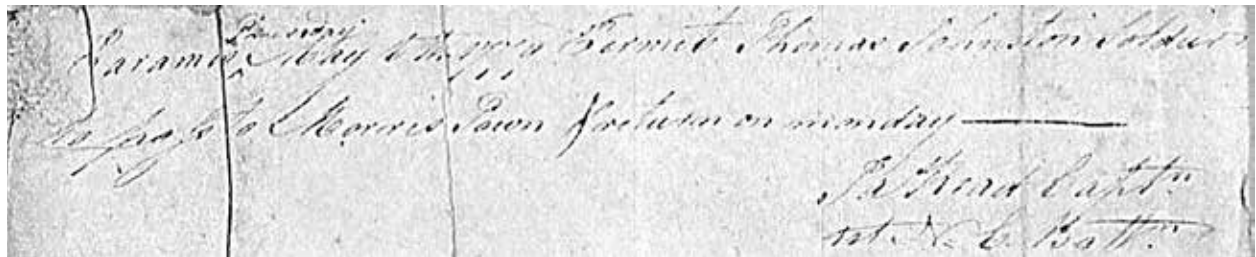 Sunday
Paramus May 6th 1779 Permit Thomas Johnston Soldier
to pass to Morris Town & return on monday
Jas Read Captn
1st N C Battn